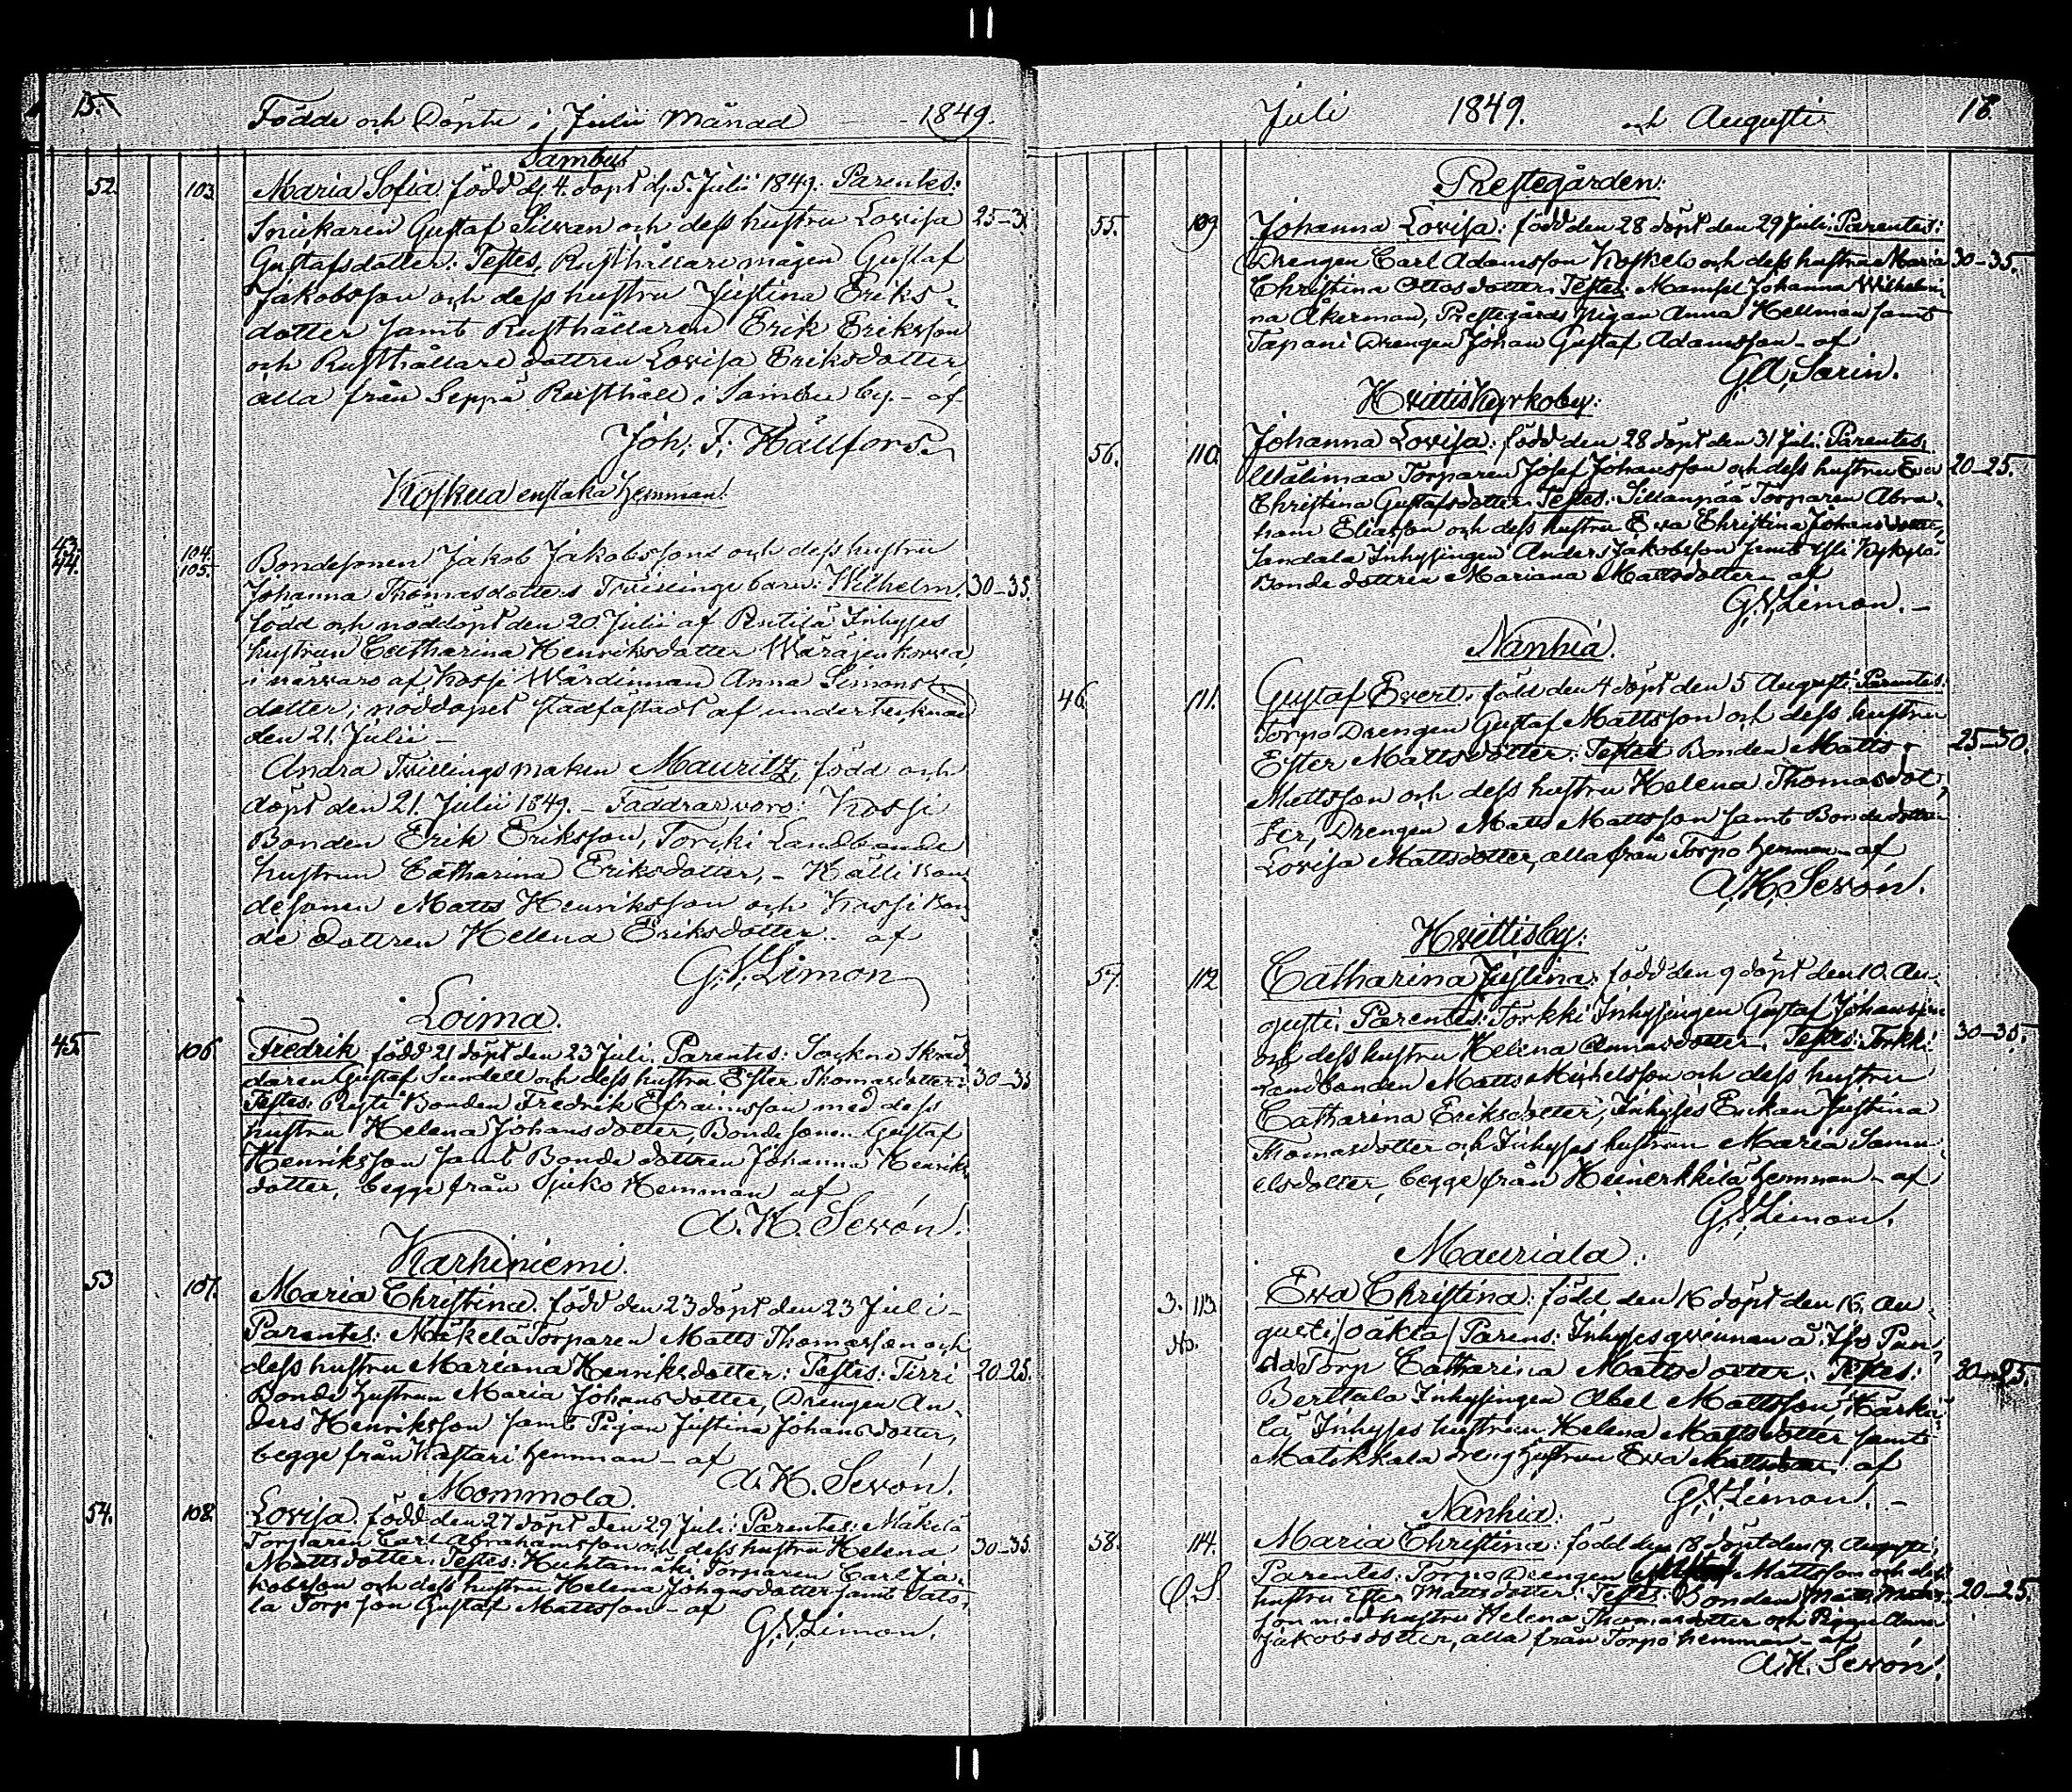 15.
Födde och Döpte i Julii Månad - 1849.
Sambu
52. 103. Maria Sofia född d. 4. döpt d. 5. Julii 1849. Parentes:
Snickaren Gustaf Silwan och dess hustru Lovisa 25-3
Gustafsdotter: Testes, Rusthållaremågen Gustaf
Jakobsson och dess hustru Justina Eriks-
dotter samt Rusthållaren Erik Eriksson
och Rusthållare dottren Lovisa Eriksdotter,
alla från Seppä Rusthåll i Sambu by. - af
Joh: F: Hällfors.
Koskua enstaka hemman:
43. 104.
44. 105. Bondesonen Jakob Jakobssons och dess hustru
Johanna Thomasdotters Tvillinge barn: Wilhelm, 30-35.
född och nöddöpt den 20 Julii af Inhyses
hustrun Catharina Henriksdotter
i närvaro af Kossi Wärdinnan Anna Simons-
dotter; nöddopet stadfästadt af undertecknad
den 21. Julii -
Andra Tvillings maken Mauritz, född och
döpt den 21. Julii 1849. - Faddrar voro: Kossi
Bonden Erik Eriksson, Torcki Landbonde
hustrun Catharina Eriksdotter, - Källi Bon-
desonen Matts Henriksson och Kossi Bon-
de dottren Helena Eriksdotter.. af
G.V. Limon
Loima.
45. 106. Fredrik född 21 döpt den 23 Juli. Parentes: Sockne Skräd-
daren Gustaf Sundell och dess hustru Ester Thomasdotter: 30-35
Testes: Bonden Fredrik Efraimsson med dess
hustru Helena Johansdotter, Bondesonen Gustaf
Henriksson samt Bonde dottren Johanna Henriks-
dotter, begge från Hemman af
A. H. Sevón.
Karhiniemi.
53 107. Maria Christina. född den 23 döpt den 23 Juli -
Parentes: Mäkelä Torparen Matts Thomasson och
dess hustru Mariana Henriksdotter: Testes: Tirri 20-25.
Bonde hustrun Maria Johansdotter, Drengen An-
ders Henriksson samt Pigan Justina Johansdotter,
begge från Kastari hemman - af
A. H. Sevón.
Mommola.
54. 108. Lovisa. född den 27 döpt den 29 Juli: Parentes: Mäkelä
Torparen Carl Abrahamsson och dess hustru Helena 30-35.
Mattsdotter. Testes: Huhtamäki Torparen Carl Ja-
kobsson och dess hustru Helena Johansdotter samt Sato-
la Torp son Gustaf Mattsson - af
G.V. Limon.
Juli 1849. och Augusti 16.
Prestegården:
55. 109. Johanna Lovisa: född den 28 döpt den 29 Juli. Parentes:
Drengen Carl Adamsson och dess hustru Maria 30-35.
Christina Ottosdotter. Testes: Mamsel Johanna Wilhelmi-
na Åkerman, Prestegårds Pigan Anna Hellman samt
Tapani Drengen Johan Gustaf Adamsson - af
G.A. Sarin.
Hvittis Kyrkoby:
56. 110. Johanna Lovisa: född den 28 döpt den 31 Juli. Parentes:
Wälimaa Torparen Josef Johansson och dess hustru Eva 20-25.
Christina Gustafsdotter. Testes: Sillanpää Torparen Abra-
ham Eliasson och dess hustru Eva Christina Johansdotter,
Sandala Inhysingen Anders Jakobsson samt
Bonde dottren Mariana Mattsdotter - af
G.V. Limon. -
Nanhia.
46. 111. Gustaf Evert. född den 4 döpt den 5 Augusti. Parentes:
Torpo Drengen Gustaf Mattsson och dess hustru
Ester Mattsdotter: Testes Bonden Matts 25-30.
Mattsson och dess hustru Helena Thomasdot-
ter, Drengen Matts Mattsson samt Bondedottren
Lovisa Mattsdotter, alla från Torpo hemman - af
A.H. Sevón.
Hvittisby:
57. 112. Catharina Justina: född den 9 döpt den 10. Au-
gusti. Parentes: Torkki Inhysingen Gustaf Johansson
och dess hustru Helena Annasdotter. Testes: Torkki 30-35.
Landbonden Matts Michelsson och dess hustru
Catharina Eriksdotter, Inhyses Enkan Justina
Thomasdotter och Inhyses hustrun Maria Samu-
elsdotter, begge från Heinerkkilä hemman - af
G.V. Limon.
Mauriala.
3. 113. Eva Christina: född den 16 döpt den 16. Au-
No. gusti /oäkta/ Parens: Inhyses qvinnan å Iso Pun-
da Torp Catharina Mattsdotter. Testes: 20-25.
Berttala Inhysingen Abel Mattsson, Härki-
lä Inhyses hustrun Helena Mattsdotter samt
Matikkala dreng hustrun Eva Mattsdotter. af
G.V. Limon. -
Nanhia:
58. 114. Maria Christina: född den 18 döpt den 19. Augusti.
Parentes: Torpo Drengen Mattsson och dess
hustru Ester Mattsdotter: Testes: Bonden Matts Matts- 20-25.
son med hustru Helena Thomasdotter och Pigan Anna
Jakobsdotter, alla från Torpo hemman - af
A.H. Sevón.